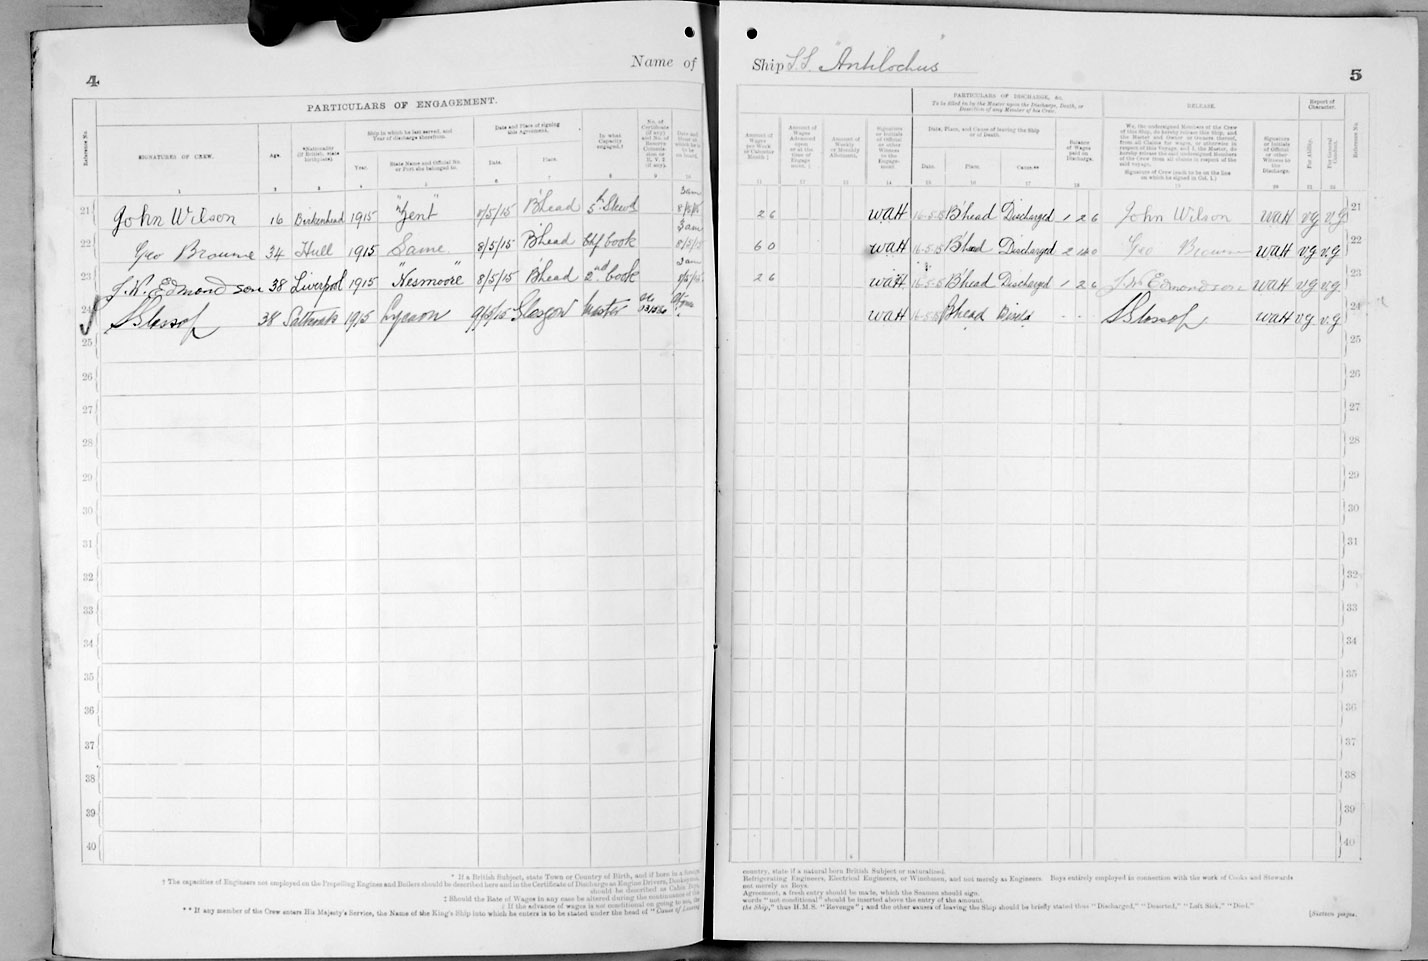 4
Name of
PARTICULARS OF ENGAGEMENT.
Reference No.
SIGNATURES OF CREW.
Age.
*Nationality (If British, state birthplace).
Ship in which he last served, and Year of discharge therefrom.
Year.
State Name and Official No. or Port she belonged to.
Date and Place of signing this Agreement.
Date.
Place.
In what Capacity engaged.†
No. of Certificate (if any)
1 2 3 4 5 6 7 8 9 10
21 John Wilson 16 Birkenhead 1915 "Zent" 8/5/15 B'head 3am
22 Geo Browne 34 Hull 1915 Same 8/5/15 B'head 3am
23 J.W. Edmondson 38 Liverpool 1915 8/5/15 B'head 2nd Cook 3am
24 S Glossop 38 1915 Lycaon 9/5/15 Glasgow Master
25
26
27
28
29
30
31
32
33
34
35
36
37
38
39
40
* If a British Subject, state Town or Country of Birth, and if born in a
† The capacities of Engineers not employed on the Propelling Engines and Boilers should be described here and in the Certificate of Discharge as Engine Drivers,
should be described as Cabin
‡ Should the Rate of Wages in any case be altered during the continuance of
‡ If the advance of wages is not conditional on going to sea, the
** If any member of the Crew enters His Majesty's Service, the Name of the King's Ship into which he enters is to be stated under the head of "Causes of
Ship S.S. "Antilochus"
5
PARTICULARS OF DISCHARGE, &c.
To be filled in by the Master upon the Discharge, Death, or Desertion of any Member of his Crew.
RELEASE.
Report of Character.
Amount of Wages per Week or Calendar Month.
Amount of Wages Advanced upon
Amount of Weekly or Monthly Allotment.
Signature or Initials of Official or other Witness to the Engagement.
Date, Place, and Cause of leaving the Ship or of Death.
Date.
Place.
Cause.**
Balance of Wages paid on Discharge.
We, the undersigned Members of the Crew of this Ship, do hereby release this Ship, and the Master and Owner or Owners thereof, from all Claims for wages, or otherwise in respect of this Voyage, and I, the Master, do hereby release the said undersigned Members of the Crew from all claims in respect of the said voyage.
Signature of Crew (each to be on the line on which he signed in Col. 1.)
Signature or Initials of Official or other Witness to the Discharge.
For Ability.
For General Conduct.
Reference No.
11 12 13 14 15 16 17 18 19 20 21 22
2 6 WaH 16-5-15 B'head Discharged 1 2 6 John Wilson WaH VG VG 21
6 0 WaH 16-5-15 B'head Discharged Geo Browne WaH VG VG 22
2 6 WaH 16-5-15 B'head Discharged 1 2 6 J.W. Edmondson WaH VG VG 23
WaH 16-5-15 B'head - - S Glossop WaH VG VG
25
26
27
28
29
30
31
32
33
34
35
36
37
38
39
40
country, state if a natural born British Subject or naturalized.
Refrigerating Engineers, Electrical Engineers, or Winchmen, and not merely as Engineers. Boys entirely employed in connection with the work of Cooks and Stewards
not merely as Boys.
Agreement, a fresh entry should be made, which the Seamen should sign.
words "not conditional" should be inserted above the entry of the amount.
the Ship," thus H.M.S. "Revenge"; and the other causes of leaving the Ship should be briefly stated thus "Discharged," "Deserted," "Left Sick," "Died."
[Sixteen pages.